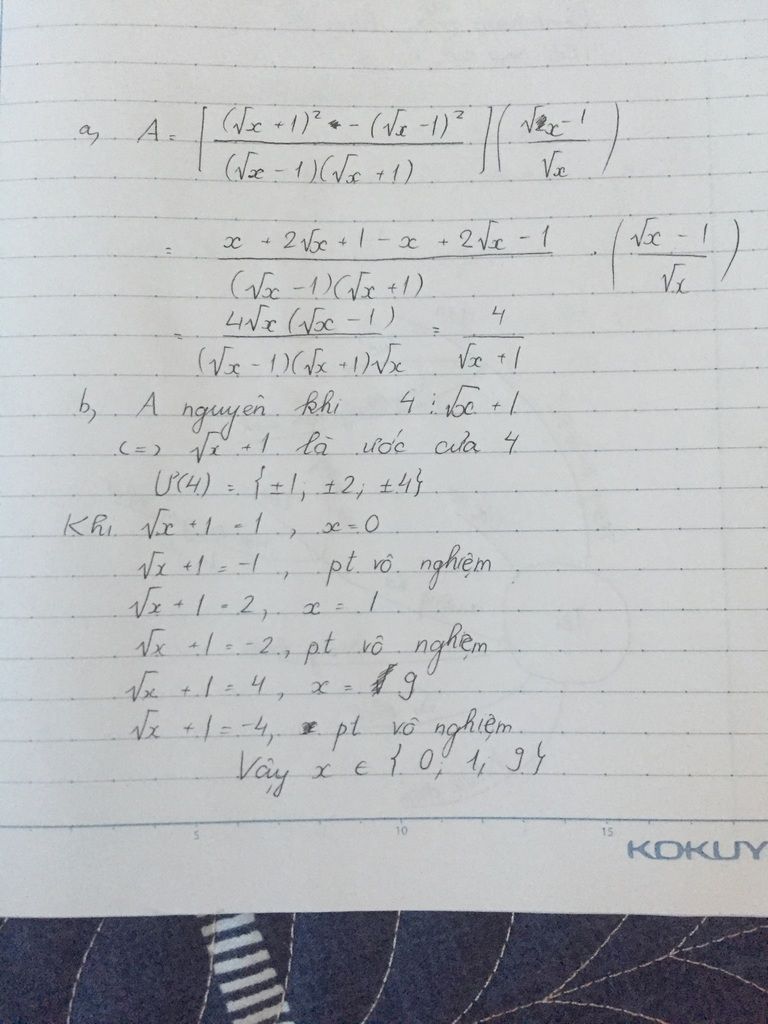 a, A = [ ((√x + 1)² - (√x - 1)²) / ((√x - 1)(√x + 1)) ] ( (√x - 1) / √x )
= (x + 2√x + 1 - x + 2√x - 1) / ((√x - 1)(√x + 1)) . ( (√x - 1) / √x )
= (4√x (√x - 1)) / ((√x - 1)(√x + 1)√x) = 4 / (√x + 1)
b, A nguyên khi 4 ⋮ √x + 1
<=> √x + 1 là ước của 4
Ư(4) = {±1; ±2; ±4}
Khi √x + 1 = 1, x = 0
√x + 1 = -1, pt vô nghiệm
√x + 1 = 2, x = 1
√x + 1 = -2, pt vô nghiệm
√x + 1 = 4, x = 9
√x + 1 = -4, pt vô nghiệm
Vậy x ∈ {0; 1, 9}
5 10 15
KOKUY